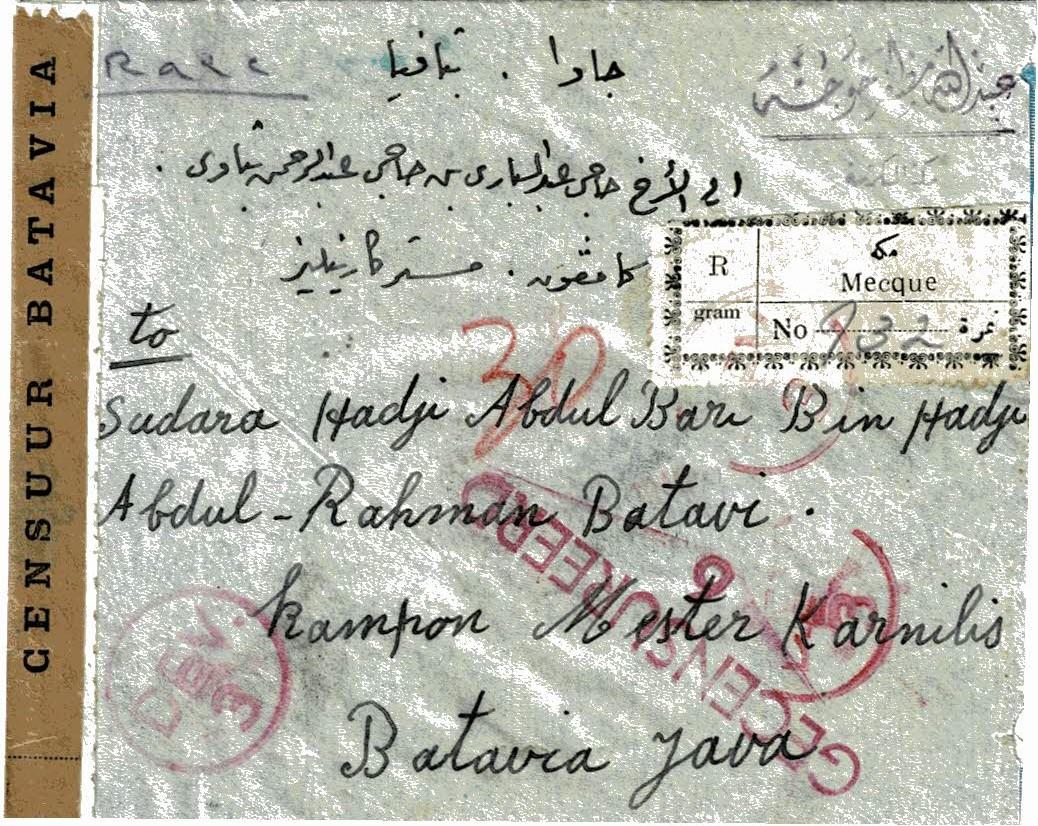 CENSUUR BATAVIA
جاوا . بتافيا
الى الأخ حاجي عبدالباري بن حاجي عبدالرحمن بتاوى .
كامفون . مستر كارنيليز
R
gram
مكة
Mecque
No 932 نمرة
to
30
Sudara Hadji Abdul Bari Bin Hadji
Abdul-Rahman Batavi .
Kampon Mester Karnilis
Batavia Java
GECENSUREERD
9